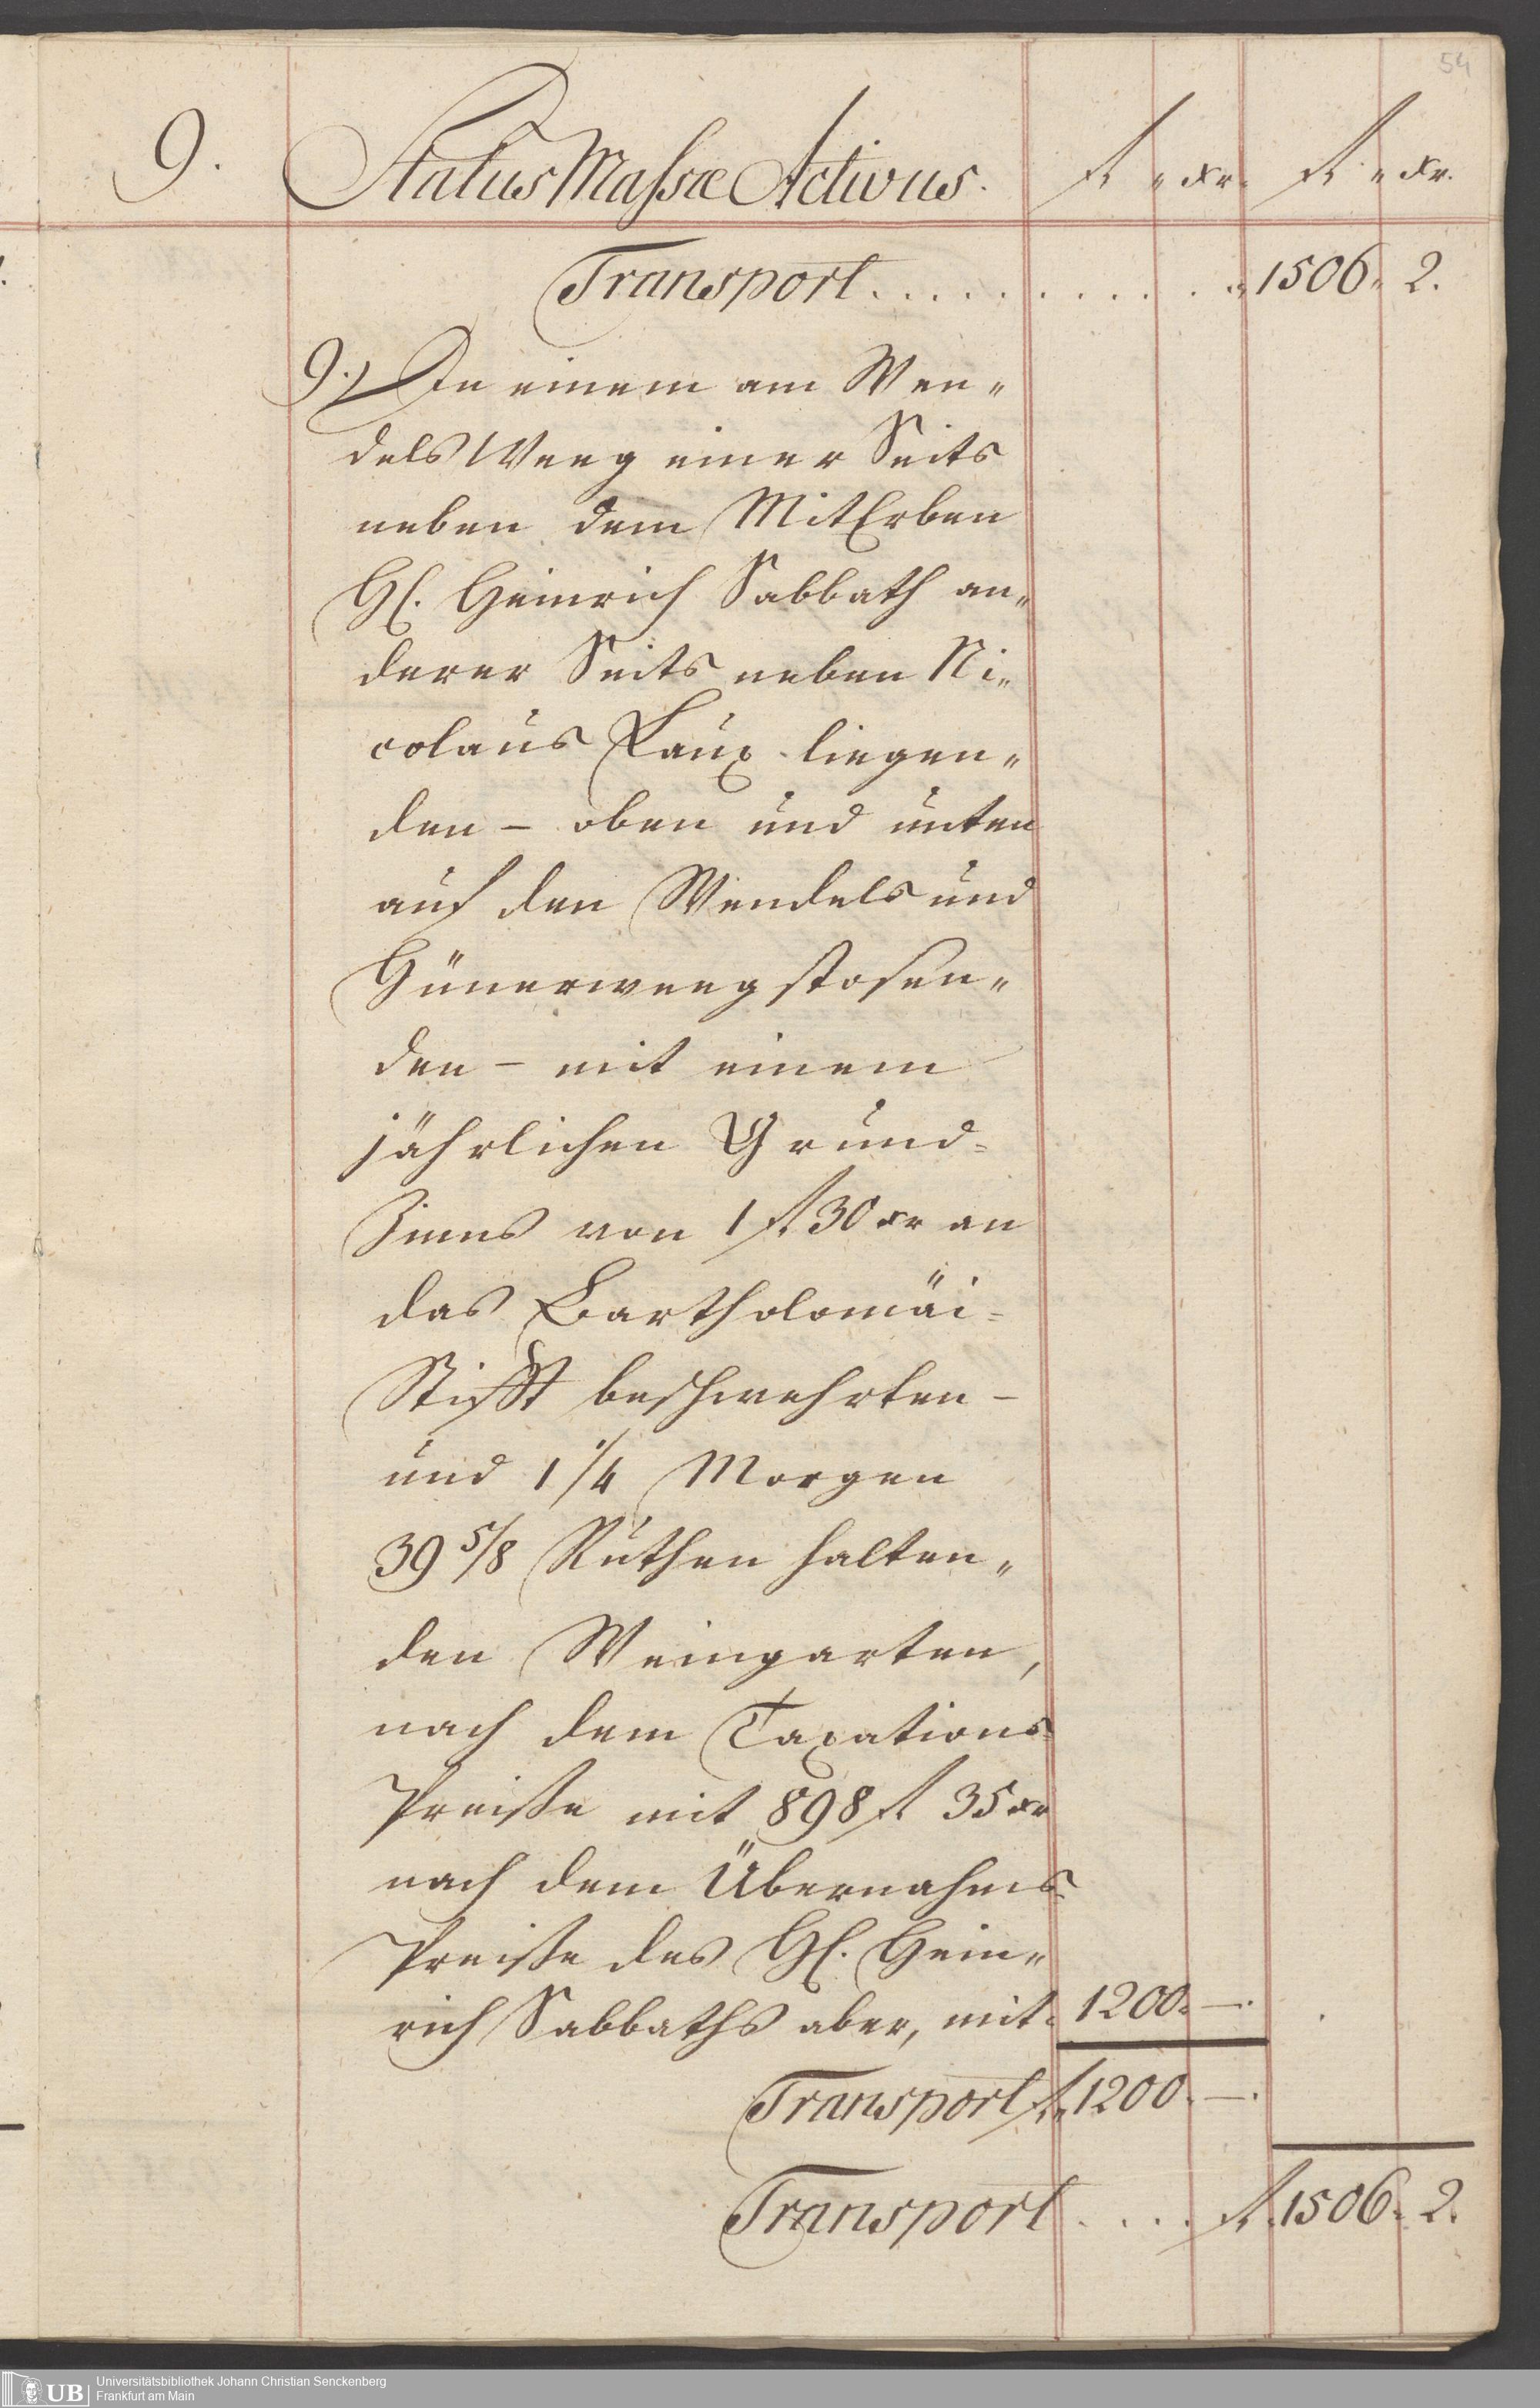 54
9. Status Massæ Activus. fl „ xr. fl „ xr.
Transport . . . . . . . . . . „ 1506. 2.
9.) In einem am Wen„
dels Weeg einer Seits
neben dem MitErben
H. Heinrich Sabbath an„
derer Seits neben Ni„
colaus Laux liegen„
den – oben und unten
auf den Wendels und
Hünerweeg stosen„
den – mit einem
jährlichen Grund=
Zinns von 1 fl 30 xr an
das Bartholomäi=
Stifft beschwehrten –
und 1 1/4 Morgen
39 5/8 Ruthen halten„
den Weingarten,
nach dem Taxations=
Preisse mit 898 fl 35 xr
nach dem Übernahms=
Preisse des H. Hein„
rich Sabbaths aber, mit. 1200. —.
Transport fl. 1200. —.
Transport . . . . fl. 1506. 2.
UB Universitätsbibliothek Johann Christian Senckenberg
Frankfurt am Main